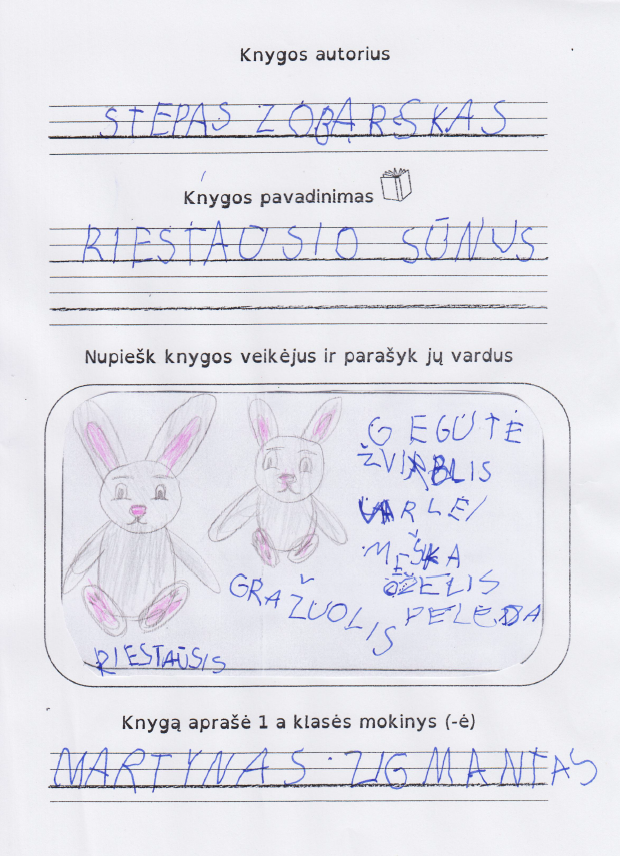 Knygos autorius
STEPAS ZOBARSKAS
Knygos pavadinimas
RIESTAUSIO SŪNUS
Nupiešk knygos veikėjus ir parašyk jų vardus
GEGUTĖ
ŽVIRBLIS
VARLĖ
MEŠKA
OŽELIS
PELĖDA
GRAŽUOLIS
RIESTAŪSIS
Knygą aprašė 1 a klasės mokinys (-ė)
MARTYNAS ZIGMANTAS